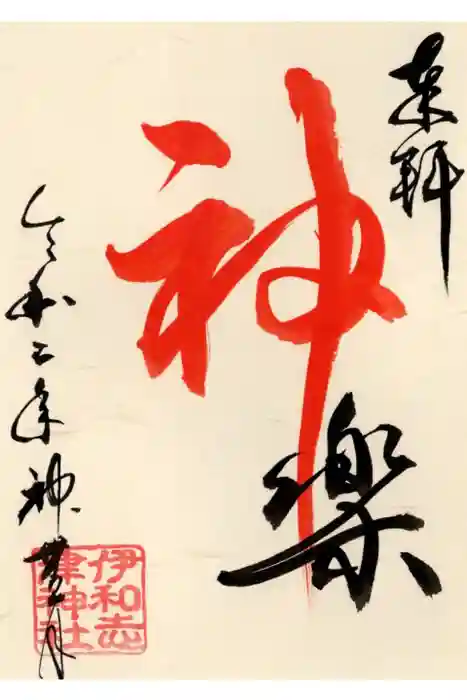 奉拝
神楽
令和二年神無月
伊和志
津神社